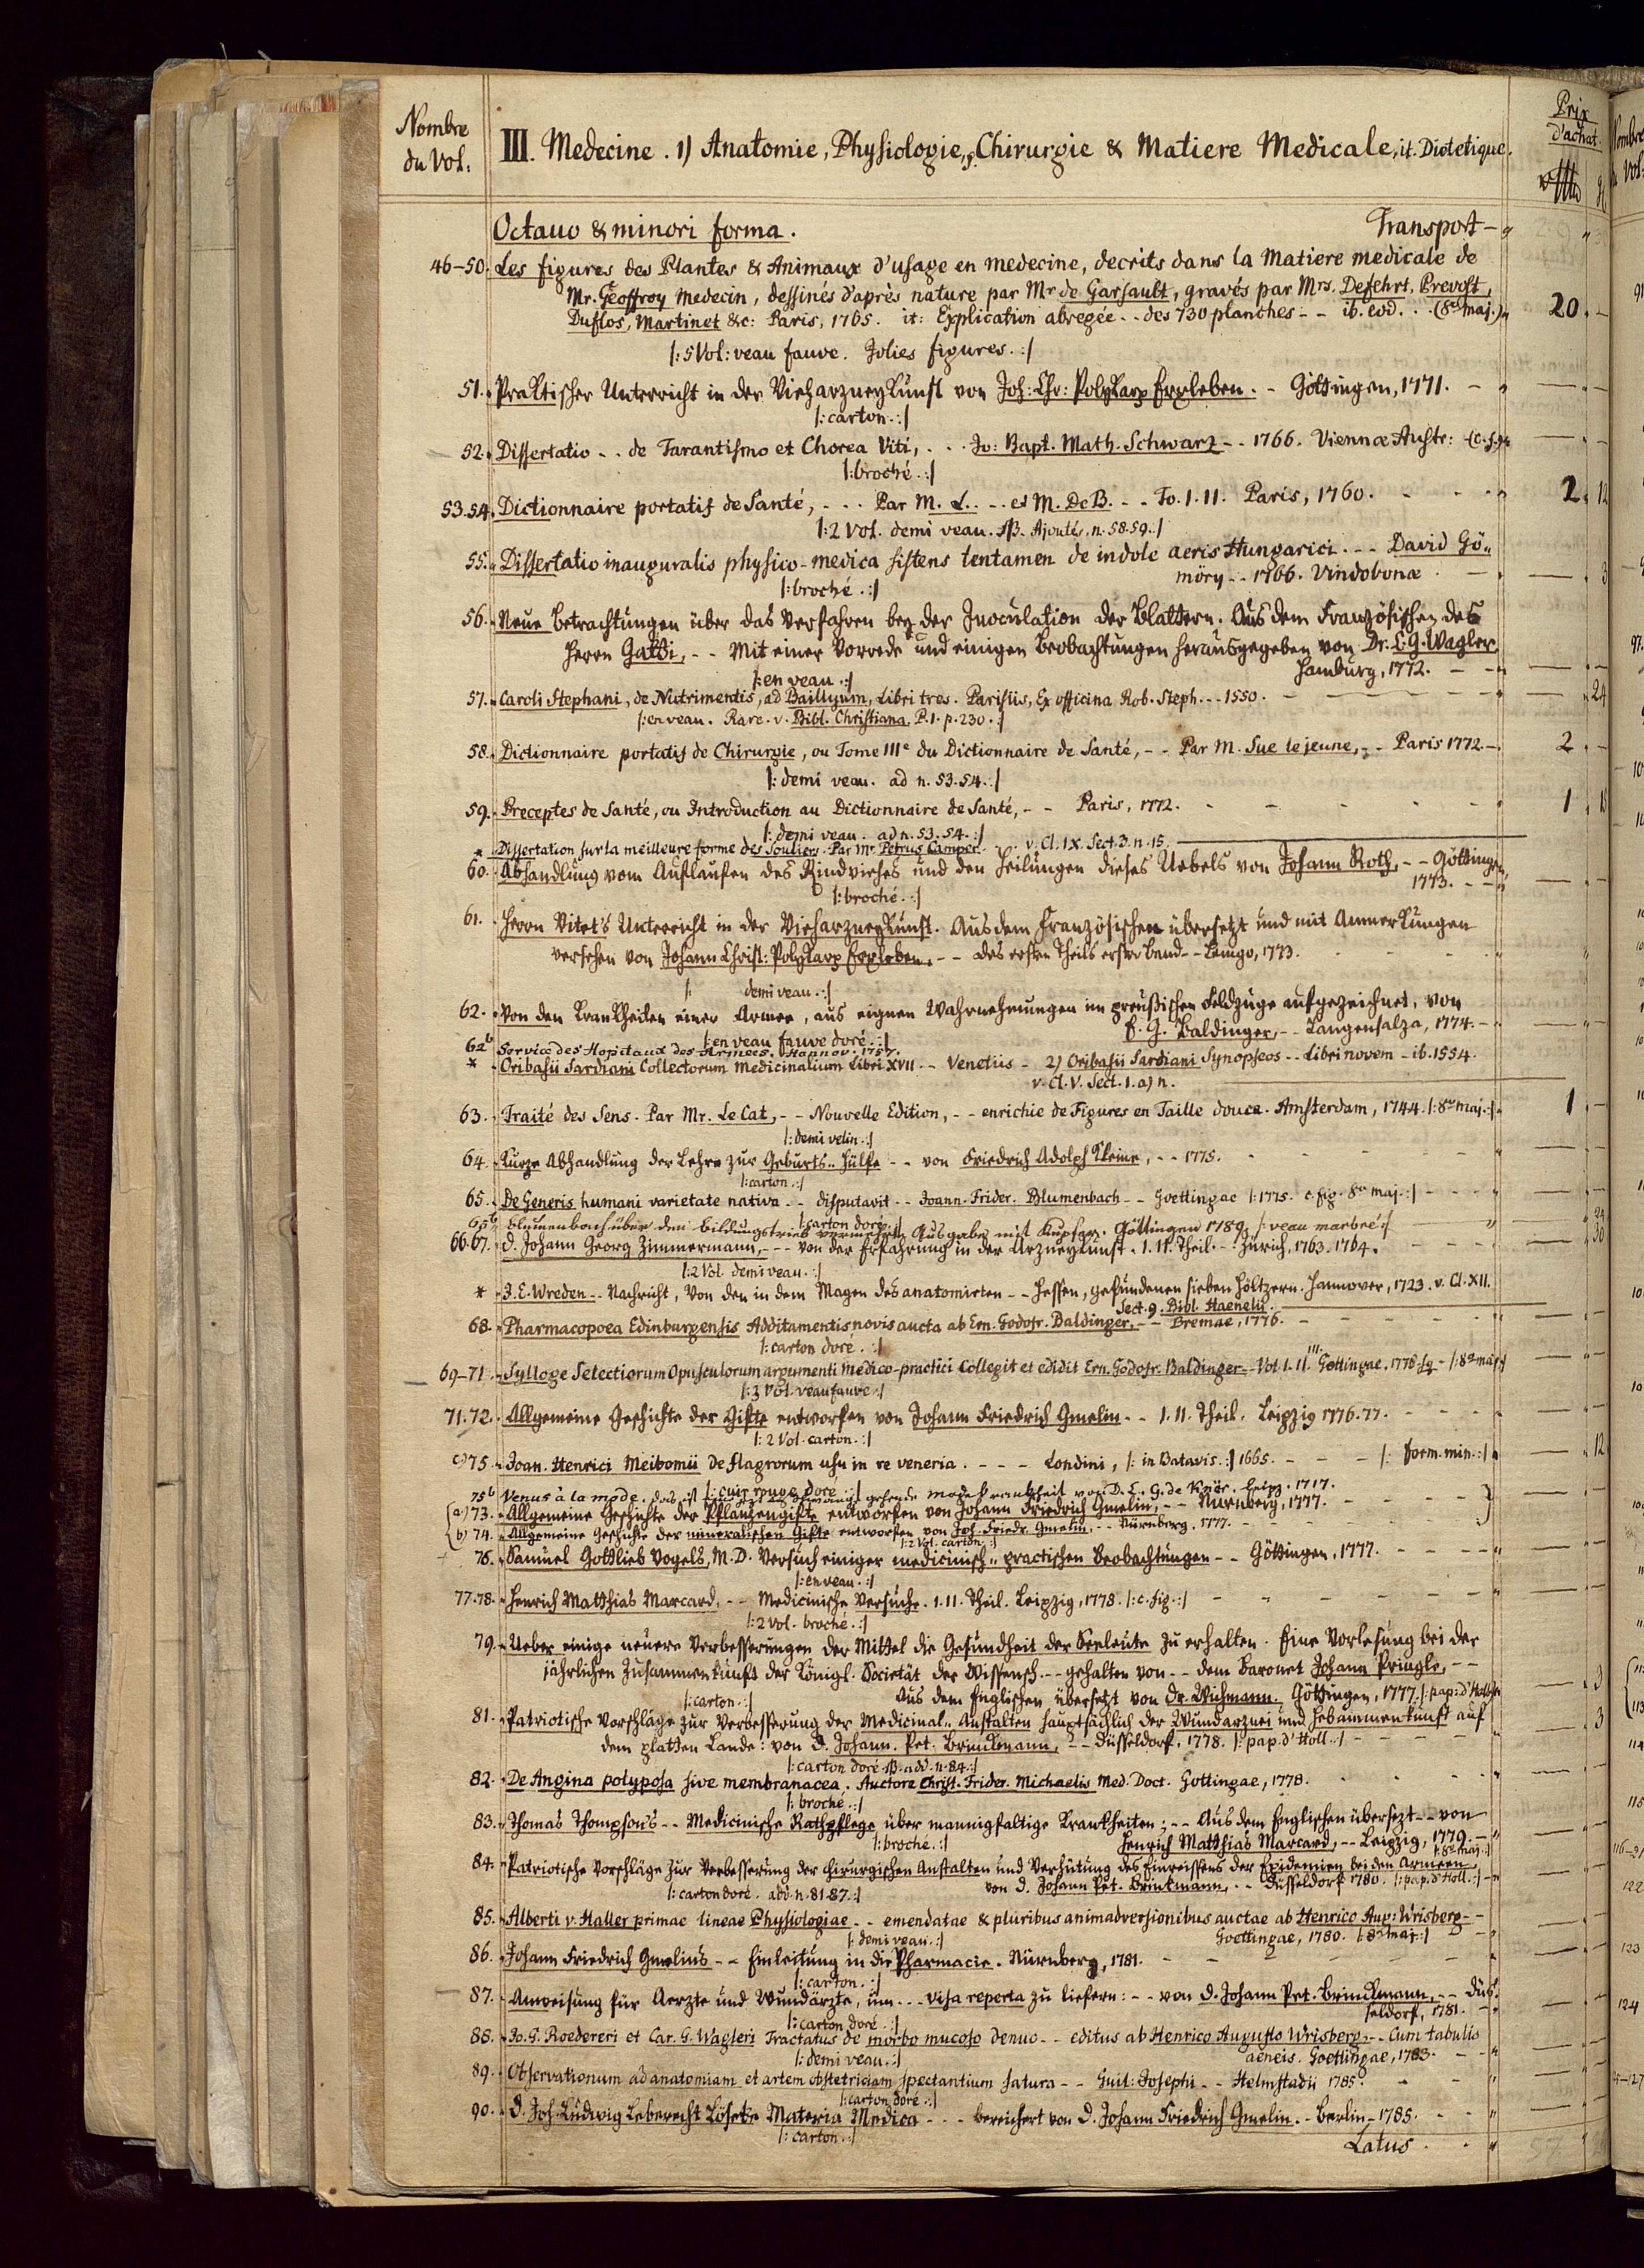 Nombre
du Vol:
III. Medecine. 1) Anatomie, Physiologie, Chirurgie & Matiere Medicale, it. Dietetique.
Prix
d'achat.
Octavo & minori forma. Transport -
46-50. Les figures des Plantes & Animaux d'usage en medecine, decrits dans la Matiere medicale de
Mr. Geoffroy Medecin, dessinés d'après nature par Mr de Garsault, gravés par Mrs. Defehrt, Prevost,
Duflos, Martinet &c: Paris, 1765. it: Explication abregée - - des 730 planches - - ib. eod. . . (8vo maj.) 20. -
/: 5 Vol: veau fauve. Jolies figures. :/
51. Praktischer Unterricht in der Vieharzneykunst von Joh: Chr: Polykarp Erxleben. - Göttingen, 1771. -
/: carton. :/
52. Dissertatio - - de Tarantismo et Chorea Viti, . . . Jo: Bapt. Math. Schwarz - - 1766. Viennæ Austr: (c. f.)
/: broché. :/
53.54. Dictionnaire portatif de Santé, - - - Par M. L. . - - et M. De B. - - To. I. II. Paris, 1760. - 2. 12
/: 2 Vol. demi veau. NB. Ajoutés. n. 58.59. :/
55. Dissertatio inauguralis physico-medica sistens tentamen de indole aeris Hungarici. - - David Gö-
möry - - 1766. Vindobonæ . - 3
/: broché. :/
56. Neue Betrachtungen über das Verfahren bey der Inoculation der Blattern. Aus dem Französischen des
Herrn Gatti, - - Mit einer Vorrede und einigen Beobachtungen herausgegeben von Dr. E. G. Wagler
Hamburg, 1772. - -
/: en veau. :/
57. Caroli Stephani, de Nutrimentis, ad Baillyum, Libri tres. Parisiis, Ex officina Rob. Steph. - - 1550. - 24
/: en veau. Rare. v. Bibl. Christiana P. I. p. 230. :/
58. Dictionnaire portatif de Chirurgie, ou Tome IIIe du Dictionnaire de Santé, - - Par M. Sue le jeune, - - Paris 1772. - 2. -
/: demi veau. ad n. 53.54. :/
59. Preceptes de Santé, ou Introduction au Dictionnaire de Santé, - - Paris, 1772. - 1. 18
/: demi veau. ad n. 53.54. :/
* Dissertation sur la meilleure forme des Souliers. Par Mr Petrus Camper. - - v. Cl. IX. Sect. 3. n. 15.
60. Abhandlung vom Auflaufen des Rindviehes und den Heilungen dieses Uebels von Johann Roth, - - Göttingen,
1773. - -
/: broché. :/
61. Herrn Vitet's Unterricht in der Vieharzneykunst. Aus dem Französischen übersetzt und mit Anmerkungen
versehen von Johann Christ: Polykarp Erxleben, - - des ersten Theils erster Band - - Lemgo, 1773.
/: demi veau. :/
62. Von den Krankheiten einer Armee, aus eignen Wahrnehmungen im preußischen Feldzuge aufgezeichnet, von
E. G. Baldinger, - - Langensalza, 1774. -
/: en veau fauve doré. :/
62b Service des Hopitaux des Armées. Hannov. 1757.
* Oribasii Sardiani Collectorum Medicinalium Libri XVII - - Venetiis - 2) Oribasii Sardiani Synopseos - - Libri novem - ib. 1554.
v. Cl. V. Sect. 1. a) n.
63. Traité des Sens. Par Mr. Le Cat, - - Nouvelle Edition, - - enrichie de Figures en Taille douce. Amsterdam, 1744. /: 8vo maj. :/ 1. -
/: demi velin. :/
64. Kurze Abhandlung der Lehre zur Geburts-Hülfe - - von Friedrich Adolph Kleine, - - 1775. -
/: carton. :/
65. De Generis humani varietate nativa - - disputavit - - Joann. Frider. Blumenbach - - Goettingae /: 1775. c. fig. 8vo maj. :/ -
/: carton doré. :/
65b Blumenbach über den Bildungstrieb vermehrte Ausgabe mit Kupfer. Göttingen 1789. /: veau marbré :/ 24
66.67. D. Johann Georg Zimmermann, - - - von der Erfahrung in der Arzneykunst. I. II. Theil. - - Zürich, 1763. 1764. 30
/: 2 Vol. demi veau. :/
* J. E. Wreden - - Nachricht, von den in dem Magen des anatomirten - - Hessen, gefundenen sieben Höltzern. Hannover, 1723. v. Cl. XII.
Sect. 9. Bibl. Haenelii.
68. Pharmacopoea Edinburgensis Additamentis novis aucta ab Ern. Godofr. Baldinger, - - Bremae, 1776. -
/: carton doré. :/
69-71. Sylloge Selectiorum Opusculorum argumenti Medico-practici Collegit et edidit Ern. Godofr. Baldinger - - Vol. I. II. III. Gottingae. 1776. sq - /: 8vo maj. :/
/: 3 Vol. veau fauve :/
71.72. Allgemeine Geschichte der Gifte entworfen von Johann Friedrich Gmelin - - I. II. Theil. Leipzig 1776. 77. -
/: 2 Vol. carton. :/
c) 75. Joan. Henrici Meibomii de flagrorum usu in re veneria. - - - Londini, /: in Batavis. :/ 1665. - - - /: form. min. :/ 12
/: cuir rouge doré. :/
75b Venus à la mode. das ist gehende Mode Krankheit von D. L. G. de Knör. Leipz. 1717.
(a) 73. Allgemeine Geschichte der Pflanzengifte entworfen von Johann Friedrich Gmelin, - - Nürnberg, 1777. -
(b) 74. Allgemeine Geschichte der mineralischen Gifte entworfen von Joh. Friedr. Gmelin, - - Nürnberg, 1777.
/: 2 Vol. carton. :/
76. Samuel Gottlieb Vogels, M. D. Versuch einiger medicinisch-practischen Beobachtungen - - Göttingen, 1777. -
/: en veau. :/
77.78. Henrich Matthias Marcard, - - Medicinische Versuche. I. II. Theil. Leipzig, 1778. /: c. fig. :/
/: 2 vol. broché. :/
79. Ueber einige neuere Verbesserungen der Mittel die Gesundheit der Seeleute zu erhalten. Eine Vorlesung bei der
jährlichen Zusammenkunft der Königl. Societät der Wissensch. - - gehalten von - - dem Baronet Johann Pringle, - -
Aus dem Englischen übersetzt von Dr. Wichmann. Göttingen, 1777. /: pap: d'Holl. :/ 3
/: carton. :/
81. Patriotische Vorschläge zur Verbesserung der Medicinal-Anstalten hauptsächlich der Wundarznei und Hebammenkunst auf
dem platten Lande: von D. Johann. Pet. Brinckmann, - - Düsseldorf, 1778. /: pap. d'Holl. :/ - 3
/: carton doré. NB. add. n. 84. :/
82. De Angina polyposa sive membranacea. Auctore Christ. Frider. Michaelis Med. Doct. Gottingae, 1778.
/: broché. :/
83. Thomas Thompson's - - Medicinische Rathpflege über mannigfaltige Krankheiten; - - Aus dem Englischen übersezt - - von
Henrich Matthias Marcard, - - Leipzig, 1779. -
/: broché. :/ /: 8vo maj. :/
84. Patriotische Vorschläge zur Verbesserung der chirurgischen Anstalten und Verhütung des Einreissens der Epidemien bei den Armeen,
von D. Johann Pet. Brinkmann, - - Düsseldorf 1780. /: pap. d'Holl. :/
/: carton doré. add. n. 81. 87. :/
85. Alberti v. Haller primae lineae Physiologiae - - emendatae & pluribus animadversionibus auctae ab Henrico Aug: Wrisberg - -
Goettingae, 1780. /: 8vo maj. :/
/: demi veau. :/
86. Johann Friedrich Gmelin's - - Einleitung in die Pharmacie. Nürnberg, 1781.
/: carton. :/
87. Anweisung für Aerzte und Wundärzte, um - - - visa reperta zu liefern: - - von D. Johann Pet. Brinckmann, - - Düs-
seldorf, 1781. -
/: carton doré. :/
88. Jo. G. Roedereri et Car. G. Wagleri Tractatus de morbo mucoso denuo - - editus ab Henrico Augusto Wrisberg, - - Cum tabulis
aeneis. Goettingae, 1783. -
/: demi veau. :/
89. Observationum ad anatomiam et artem obstetriciam spectantium satura - - Guil: Josephi - - Helmstadii 1785.
/: carton doré. :/
90. D. Joh. Ludwig Leberecht Löseke Materia Medica - - - bereichert von D. Johann Friedrich Gmelin. - Berlin - 1785.
/: carton. :/
Latus